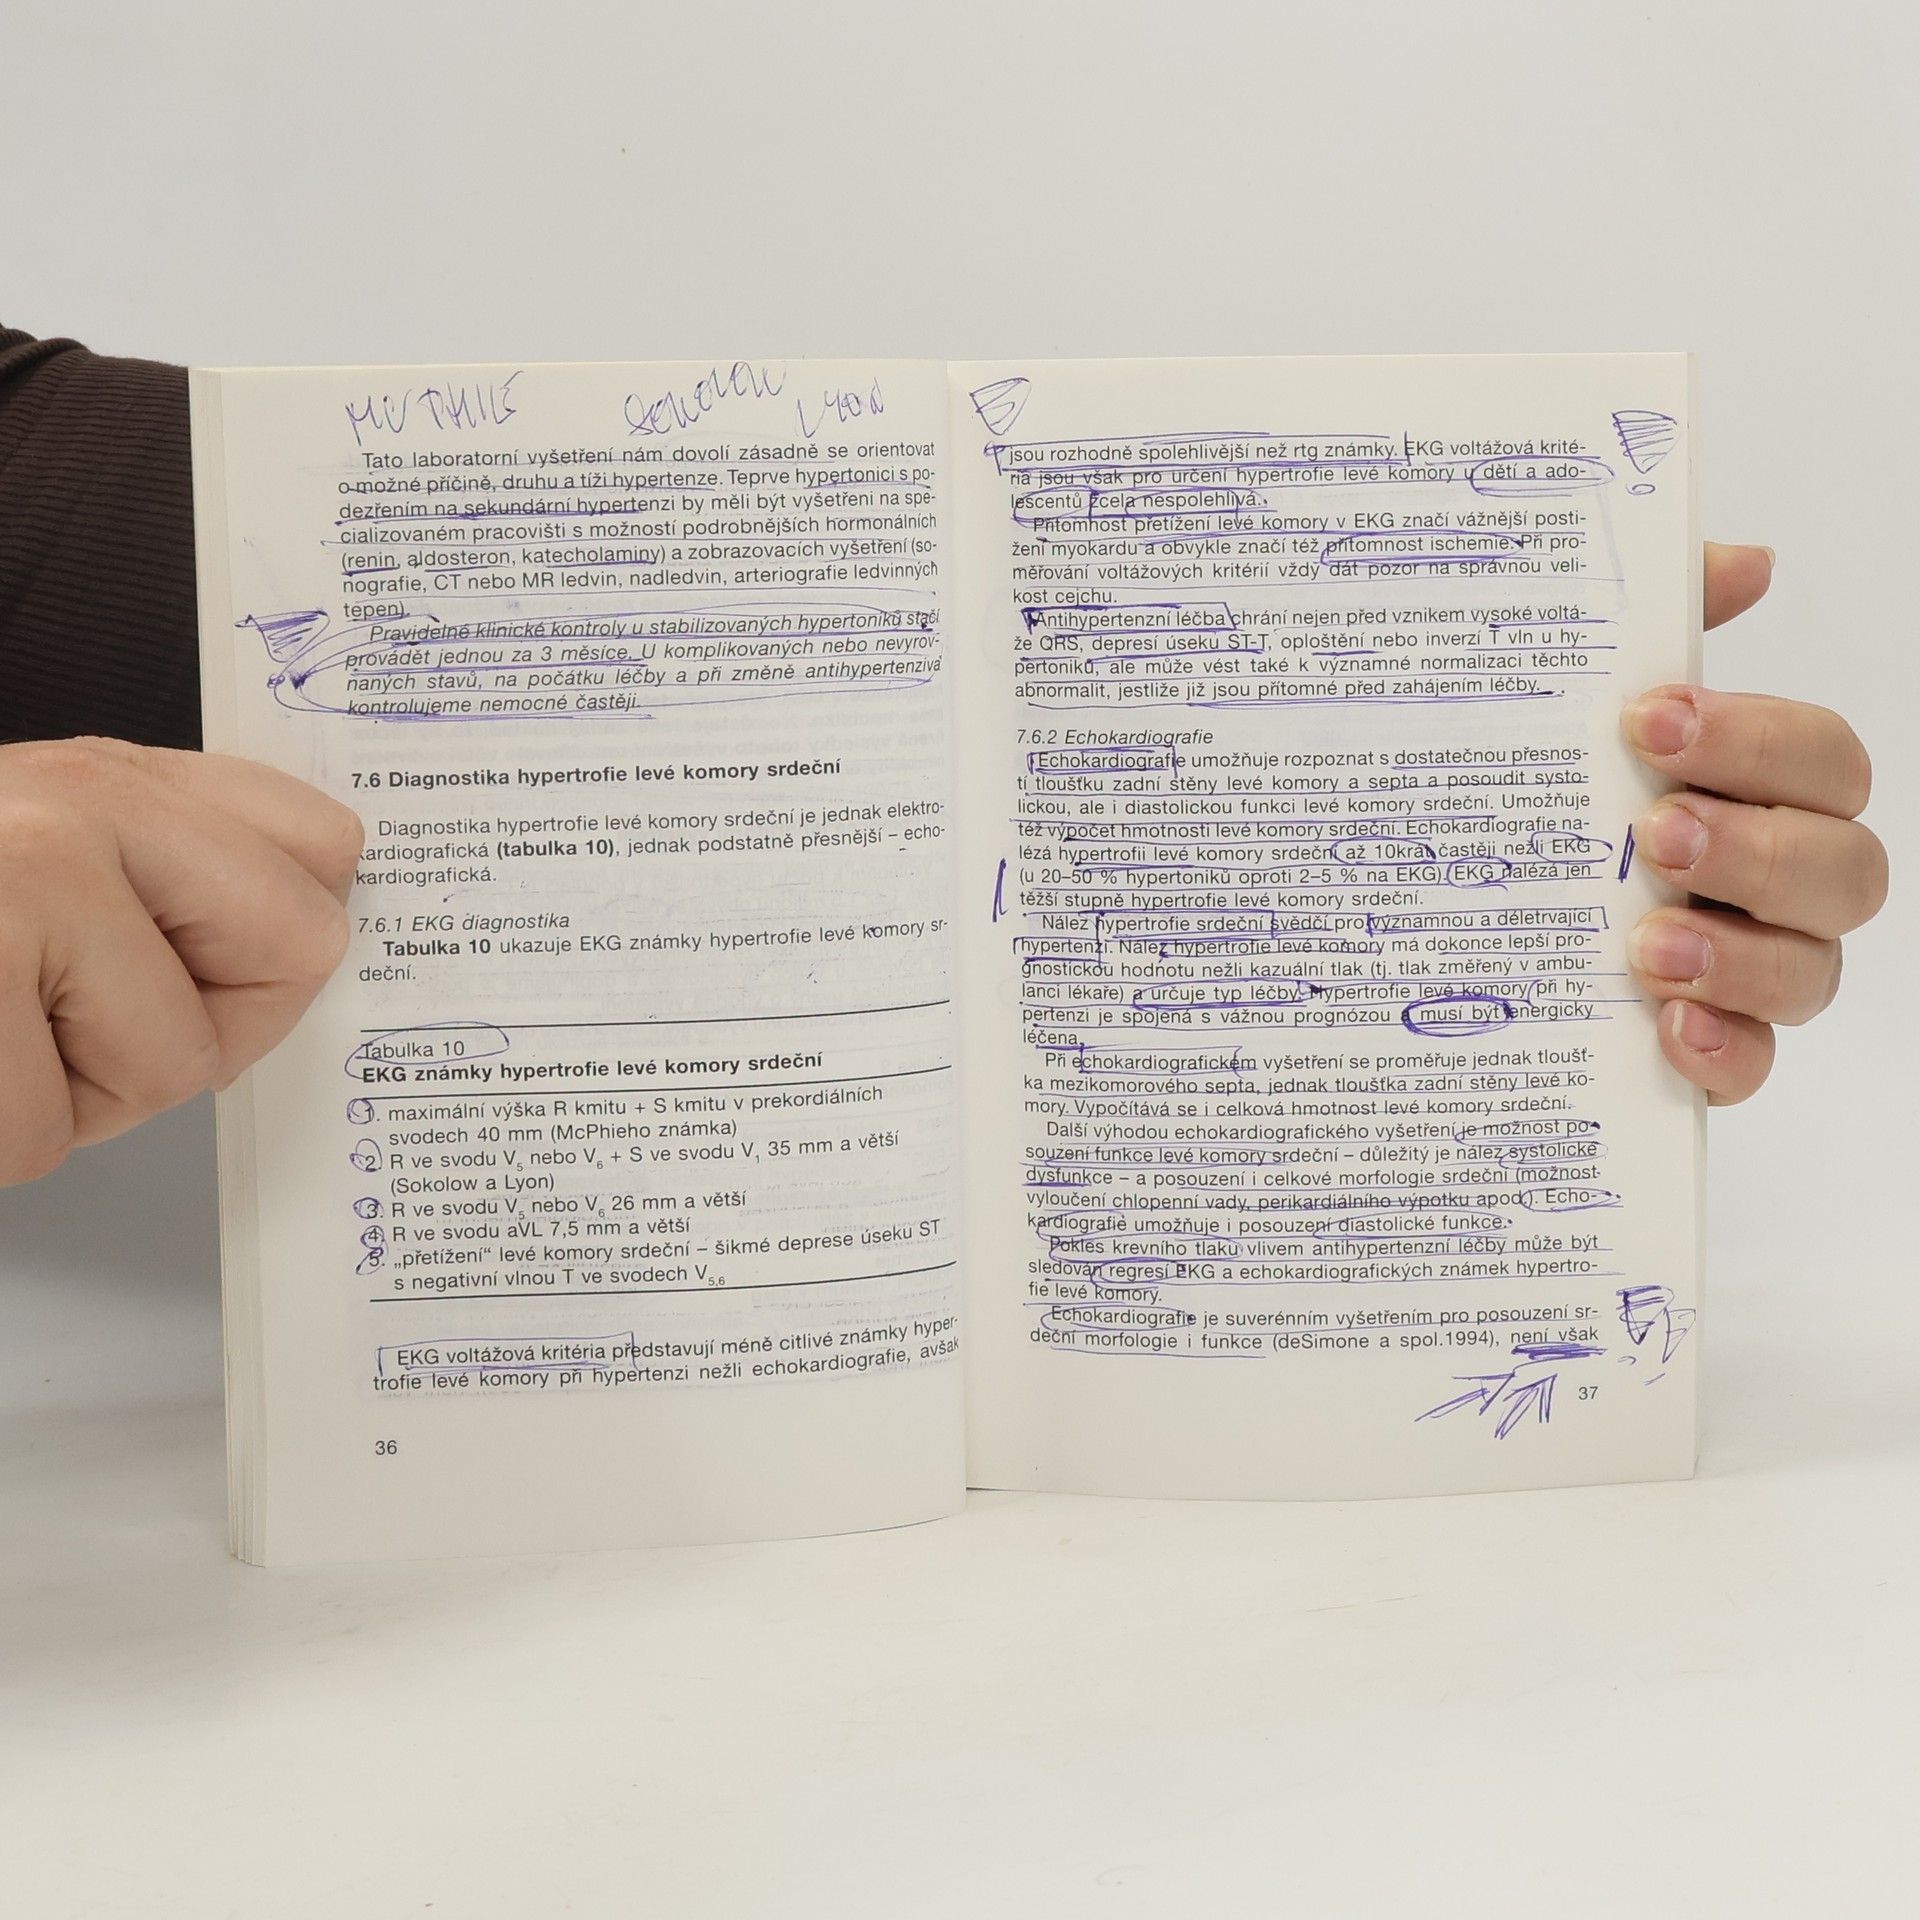 SOKOLOW
LYON
Tato laboratorní vyšetření nám dovolí zásadně se orientovat
o možné příčině, druhu a tíži hypertenze. Teprve hypertonici s po-
dezřením na sekundární hypertenzi by měli být vyšetřeni na spe-
cializovaném pracovišti s možností podrobnějších hormonálních
(renin, aldosteron, katecholaminy) a zobrazovacích vyšetření (so-
nografie, CT nebo MR ledvin, nadledvin, arteriografie ledvinných
tepen).
Pravidelné klinické kontroly u stabilizovaných hypertoniků stačí
provádět jednou za 3 měsíce. U komplikovaných nebo nevyrov-
naných stavů, na počátku léčby a při změně antihypertenziva
kontrolujeme nemocné častěji.
7.6 Diagnostika hypertrofie levé komory srdeční
Diagnostika hypertrofie levé komory srdeční je jednak elektro-
kardiografická (tabulka 10), jednak podstatně přesnější – echo-
kardiografická.
7.6.1 EKG diagnostika
Tabulka 10 ukazuje EKG známky hypertrofie levé komory sr-
deční.
Tabulka 10
EKG známky hypertrofie levé komory srdeční
1. maximální výška R kmitu + S kmitu v prekordiálních
svodech 40 mm (McPhieho známka)
2. R ve svodu V5 nebo V6 + S ve svodu V1 35 mm a větší
(Sokolow a Lyon)
3. R ve svodu V5 nebo V6 26 mm a větší
4. R ve svodu aVL 7,5 mm a větší
5. „přetížení“ levé komory srdeční – šikmé deprese úseku ST
s negativní vlnou T ve svodech V5,6
EKG voltážová kritéria představují méně citlivé známky hyper-
trofie levé komory při hypertenzi nežli echokardiografie, avšak
36
jsou rozhodně spolehlivější než rtg známky. EKG voltážová krité-
ria jsou však pro určení hypertrofie levé komory u dětí a ado-
lescentů zcela nespolehlivá.
Přítomnost přetížení levé komory v EKG značí vážnější posti-
žení myokardu a obvykle značí též přítomnost ischemie. Při pro-
měřování voltážových kritérií vždy dát pozor na správnou veli-
kost cejchu.
Antihypertenzní léčba chrání nejen před vznikem vysoké voltá-
že QRS, depresí úseku ST-T, oploštění nebo inverzí T vln u hy-
pertoniků, ale může vést také k významné normalizaci těchto
abnormalit, jestliže již jsou přítomné před zahájením léčby.
7.6.2 Echokardiografie
Echokardiografie umožňuje rozpoznat s dostatečnou přesnos-
tí tloušťku zadní stěny levé komory a septa a posoudit systo-
lickou, ale i diastolickou funkci levé komory srdeční. Umožňuje
též výpočet hmotnosti levé komory srdeční. Echokardiografie na-
lézá hypertrofii levé komory srdeční až 10krát častěji nežli EKG
(u 20–50 % hypertoniků oproti 2–5 % na EKG). EKG nalézá jen
těžší stupně hypertrofie levé komory srdeční.
Nález hypertrofie srdeční svědčí pro významnou a déletrvající
hypertenzi. Nález hypertrofie levé komory má dokonce lepší pro-
gnostickou hodnotu nežli kazuální tlak (tj. tlak změřený v ambu-
lanci lékaře) a určuje typ léčby. Hypertrofie levé komory při hy-
pertenzi je spojená s vážnou prognózou a musí být energicky
léčena.
Při echokardiografickém vyšetření se proměřuje jednak tloušť-
ka mezikomorového septa, jednak tloušťka zadní stěny levé ko-
mory. Vypočítává se i celková hmotnost levé komory srdeční.
Další výhodou echokardiografického vyšetření je možnost po-
souzení funkce levé komory srdeční – důležitý je nález systolické
dysfunkce – a posouzení i celkové morfologie srdeční (možnost
vyloučení chlopenní vady, perikardiálního výpotku apod.). Echo-
kardiografie umožňuje i posouzení diastolické funkce.
Pokles krevního tlaku vlivem antihypertenzní léčby může být
sledován regresí EKG a echokardiografických známek hypertro-
fie levé komory.
Echokardiografie je suverénním vyšetřením pro posouzení sr-
deční morfologie i funkce (deSimone a spol.1994), není však
37